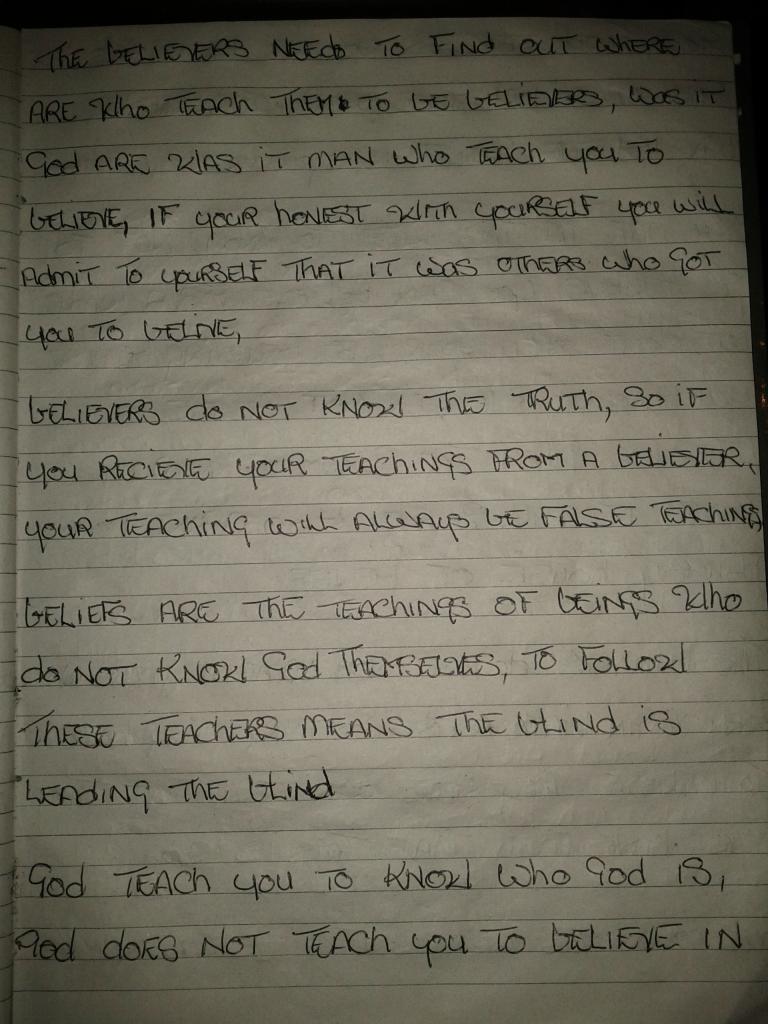 THE BELIEVERS NEEDS TO FIND OUT WHERE
ARE WHO TEACH THEM TO BE BELIEVERS, WAS IT
GOD ARE WAS IT MAN WHO TEACH YOU TO
BELIEVE, IF YOUR HONEST WITH YOURSELF YOU WILL
ADMIT TO YOURSELF THAT IT WAS OTHERS WHO GOT
YOU TO BELIVE,
BELIEVERS DO NOT KNOW THE TRUTH, SO IF
YOU RECIEVE YOUR TEACHINGS FROM A BELIEVER,
YOUR TEACHING WILL ALWAYS BE FALSE TEACHING,
BELIEFS ARE THE TEACHINGS OF BEINGS WHO
DO NOT KNOW GOD THEMSELVES, TO FOLLOW
THESE TEACHERS MEANS THE BLIND IS
LEADING THE BLIND
GOD TEACH YOU TO KNOW WHO GOD IS,
GOD DOES NOT TEACH YOU TO BELIEVE IN